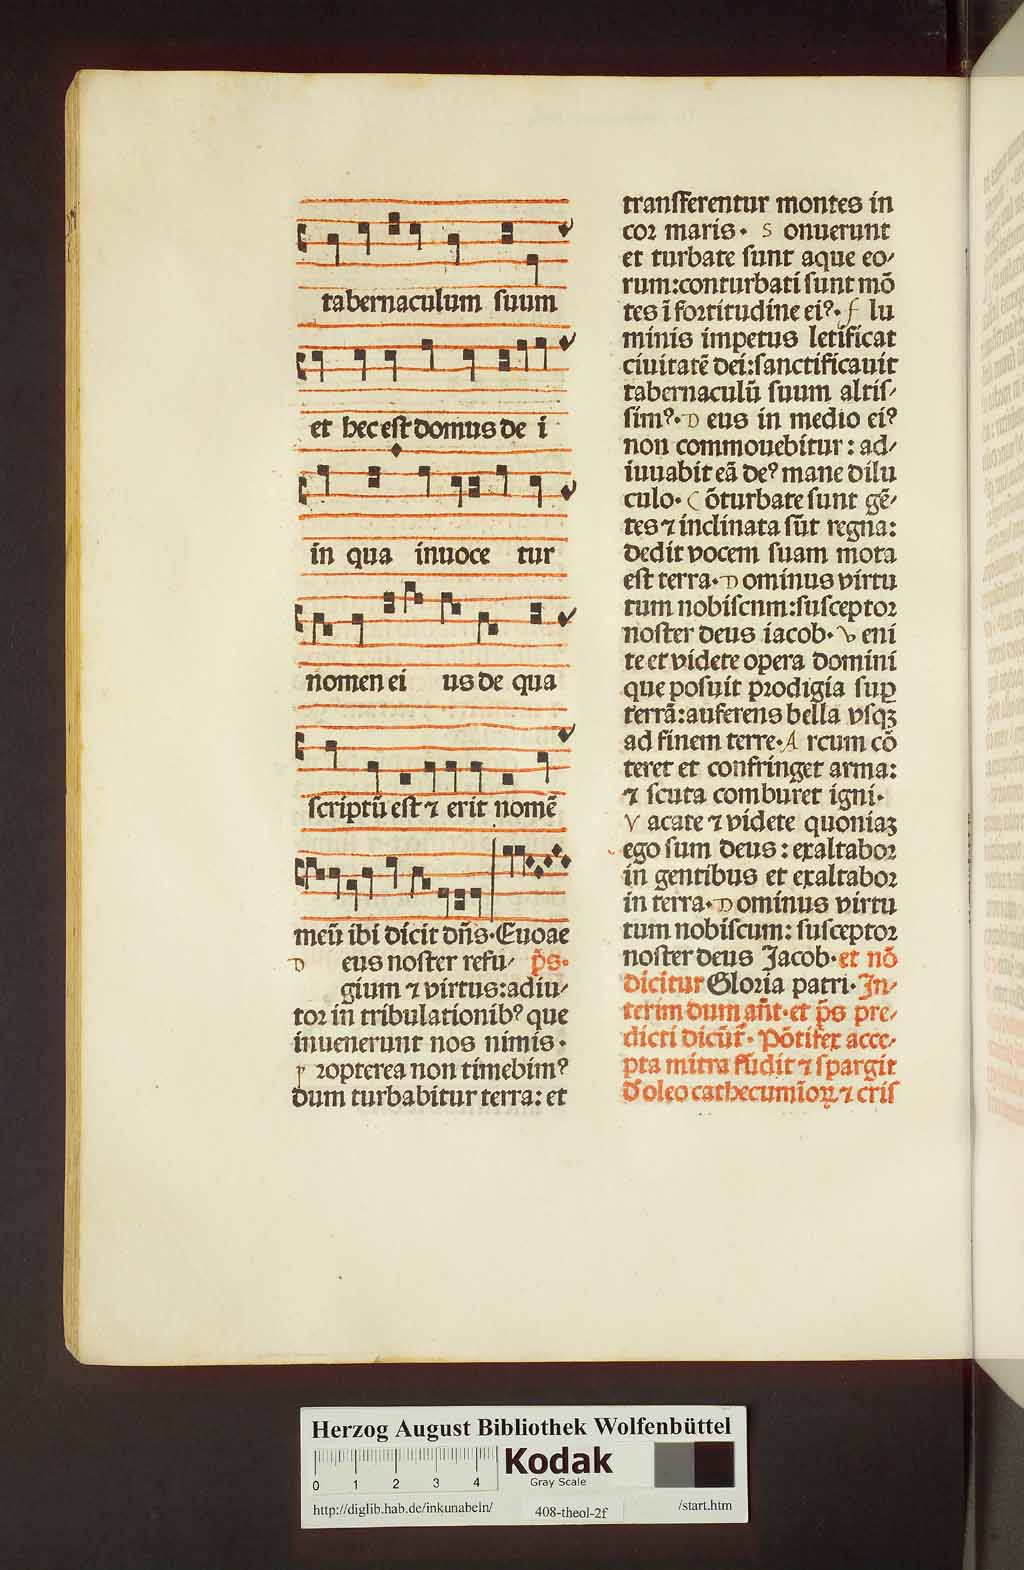 tabernaculum suum
et hec est domus de i
in qua inuoce tur
nomen ei us de qua
scriptū est ⁊ erit nomē
meū ibi dicit dn̄s·Euoae
D eus noster refu⸗ p̄s·
gium ⁊ virtus:adiu⸗
tor in tribulationibꝰ que
inuenerunt nos nimis·
P ropterea non timebimꝰ
dum turbabitur terra: et
transferentur montes in
cor maris· S onuerunt
et turbate sunt aque eo⸗
rum:conturbati sunt mō
tes ī fortitudine eiꝰ· f lu
minis impetus letificat
ciuitatē dei:sanctificauit
tabernaculū suum altis⸗
simꝰ· D eus in medio eiꝰ
non commouebitur: ad⸗
iuuabit eā deꝰ mane dilu
culo· C ōturbate sunt gē⸗
tes ⁊ inclinata sūt regna:
dedit vocem suam mota
est terra· D ominus virtu
tum nobiscnm:susceptor
noster deus iacob· V eni
te et videte opera domini
que posuit prodigia suꝑ
terrā:auferens bella vsqꝫ
ad finem terre· A rcum cō
teret et confringet arma:
⁊ scuta comburet igni·
V acate ⁊ videte quoniaꝫ
ego sum deus: exaltabor
in gentibus et exaltabor
in terra· D ominus virtu
tum nobiscum: susceptor
noster deus Jacob· et nō
dicitur Gloria patri· In⸗
terim dum an̄t·et p̄s pre⸗
dicti dicūt᷑· Pōtifex acce⸗
pta mitra fūdit ⁊ spargit
d̕ oleo cathecumīoꝝ ⁊ cris
Herzog August Bibliothek Wolfenbüttel
0 1 2 3 4
Kodak
Gray Scale
http://diglib.hab.de/inkunabeln/
408-theol-2f
/start.htm